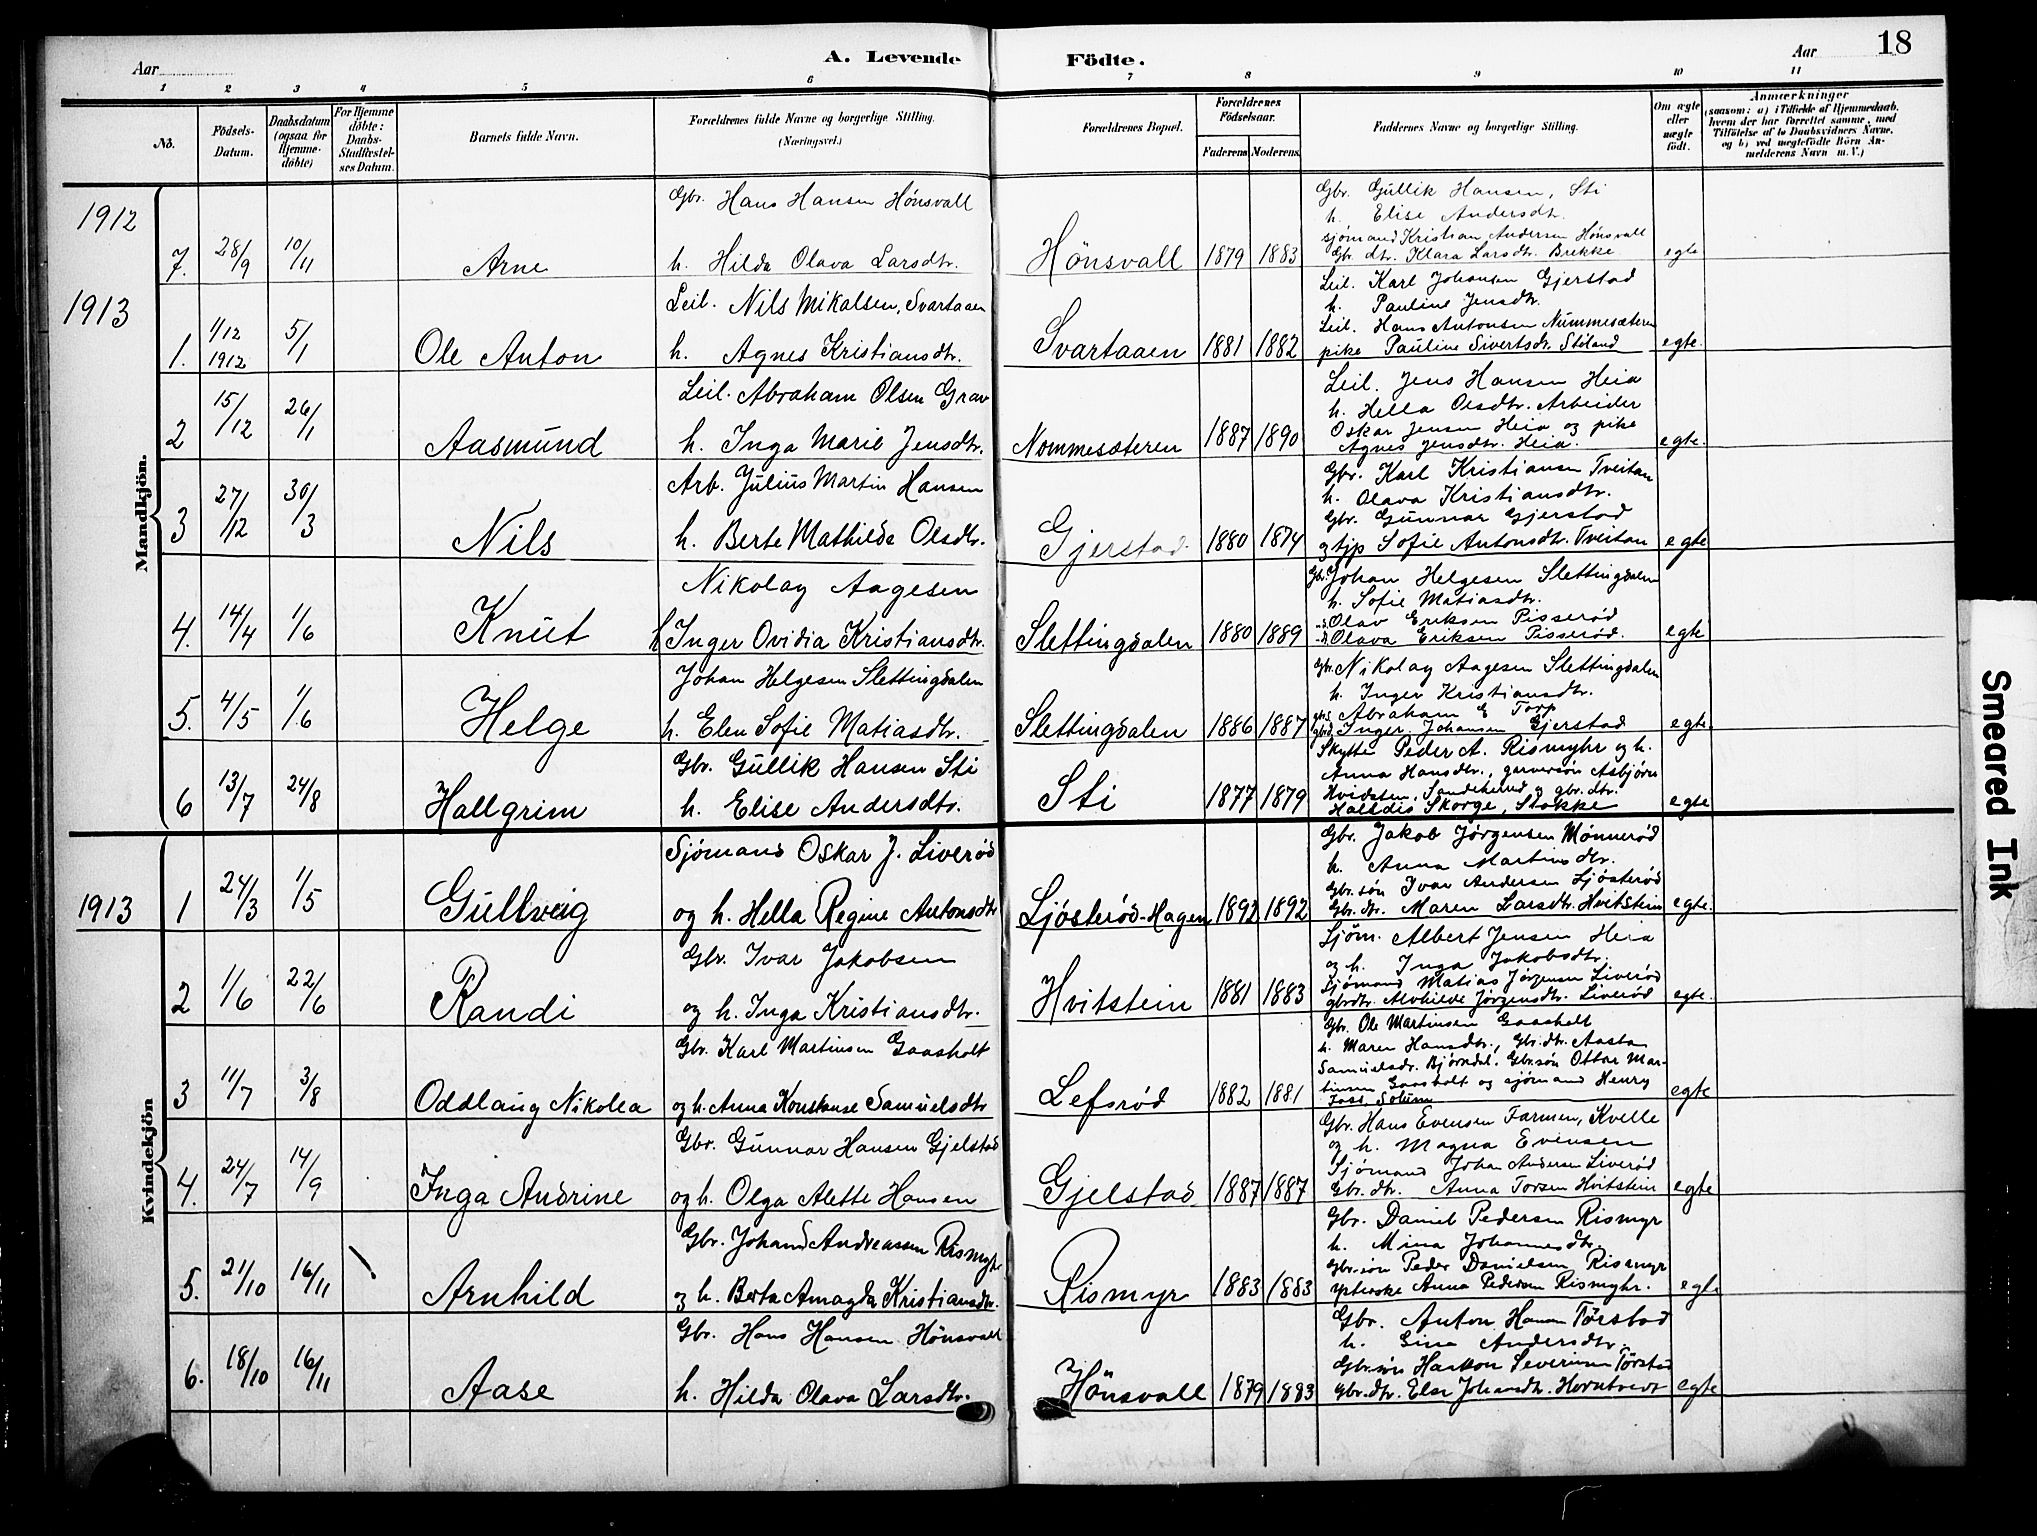 18
Aar
A. Levende Födte.
Aar
1 2 3 4 5 6 7 8 9 10 11
No.
Födsels-Datum.
Daabsdatum (ogsaa för Hjemme-döbte)
For Hjemme döbte: Daabs-Stadfæstel-ses Datum.
Barnets fulde Navn.
Forældrenes fulde Navne og borgerlige Stilling. (Næringsvei.)
Forældrenes Bopæl.
Forældrenes Födselsaar.
Faderens Moderens
Faddernes Navne og borgerlige Stilling.
Om ægte eller uægte födt.
Anmærkninger
(saasom: a) i Tilfælde af Hjemmedaab, hvem der har forrettet samme, med Tilföielse af to Daabsvidners Navne, og b) ved uegtefödte Börn An-melderens Navn m. V.)
1912
Mandkjön.
Gbr. Hans Hansen Hönsvall
Gbr. Gullik Hansen, Sti
h. Elise Andersdtr.
sjømand Kristian Andersen Hönsvall
7. 28/9 10/11 Arne h. Hilda Olava Larsdtr. Hönsvall 1879 1883 Gbr. dtr. Klara Larsdtr. Brekke egte
1913
Leil. Nils Mikalsen, Svartaaen
Leil. Karl Johansen Gjerstad
h. Pauline Jensdtr.
Leil. Hans Antonsen Nummesæteren
1. 1/12 1912 5/1 Ole Anton h. Agnes Kristiansdtr. Svartaaen 1881 1882 pike Pauline Sivertsdtr. Stöland egte.
Leil. Abraham Olsen Grav
Leil. Jens Hansen Heia
h. Hella Olsdtr. Arbeider
Oskar Jensen Heia og pike
2 15/12 26/1 Aasmund h. Inga Marie Jensdtr. Nommesæteren 1887 1890 Agnes Jensdtr. Heia. egte.
Arb. Julius Martin Hansen
Gbr. Karl Kristiansen Tveitan
h. Olava Kristiansdtr.
Gbr. Gunnar Gjerstad
3 27/12 30/3 Nils h. Berte Mathilde Olsdtr. Gjerstad. 1880 1874 og tjp Sofie Antonsdtr. Tveitan egte
Nikolay Aagesen
Gbr. Johan Helgesen Slettingdalen
h. Sofie Matiasdtr.
Olav Eriksen Pisserød
4. 14/4 1/6 Knut h Inger Ovidia Kristiansdtr. Slettingdalen 1880 1889 Olava Eriksen Pisserød. egte
Johan Helgesen Slettingdalen
Gbr. Nikolay Aagesen Slettingdalen
h. Inger Kristiansdtr.
Abraham E Torp
5. 4/5 1/6 Helge h. Elen Sofie Matiasdtr. Slettingdalen 1886 1887 Inger Johansen Gjerstad egte.
Gbr. Gullik Hansen Sti
Skytte Peder A. Rismyhr og h.
Anna Hansdtr., garversön Asbjörn
Hvidsten, Sandehered og gbr. dtr.
6 13/7 24/8 Hallgrim h. Elise Andersdtr. Sti 1877 1879 Halldis Skorge, Stokke egte
1913
Kvindekjön
Sjømand Oskar J. Liverød
Gbr. Jakob Jørgensen Mönnerød
h. Anna Martinsdtr.
Gbr. søn Ivar Andersen Ljösterød
1 24/3 1/5 Gullveig og h. Hella Regine Antonsdtr Ljösterød-Hagen 1892 1892 Gbr. dtr. Maren Larsdtr. Hvitstein egte.
Gbr. Ivar Jakobsen
Sjøm. Albert Jensen Heia
og h. Inga Jakobsdtr.
Sjømand Matias Jørgensen Liverød
2 1/6 22/6 Randi og h. Inga Kristiansdtr. Hvitstein 1881 1883 gbrdtr. Alvhilde Jørgensdtr. Liverød egte.
Gbr. Karl Martinsen Gaasholt
Gbr. Ole Martinsen Gaasholt
h. Maren Hansdtr., Gbr. dtr. Aasta
Samuelsdr. Bjørndal. Gbr.søn Ottar Mar-
tinsen Gaasholt og sjømand Henry
3 11/7 3/8 Oddlaug Nikolea og h. Anna Konstanse Samuelsdtr Lefsrød 1882 1881 Foss Solum egte
Gbr. Gunnar Hansen Gjelstad
Gbr. Hans Evensen Farmen, Kvelle
og h. Magna Evensen
Sjømand Johan Andersen Liverød
4. 24/7 14/9 Inga Andrine og h. Olga Alette Hansen Gjelstad 1887 1887 Gbr. dtr. Anna Torsen Hvitstein egte
Gbr. Johans Andreassen Rismyhr
Gbr. Daniel Pedersen Rismyr
h. Mina Johannesdtr.
Gbr. søn Peder Danielsen Rismyr
5. 21/10 16/11 Arnhild og h. Berta Amagda Kristiansdtr. Rismyr 1883 1883 Anna Pedersen Rismyhr. egte
Gbr. Hans Hansen Hönsvall
Gbr. Anton Hansen Törstad
h. Gina Andersdtr.
Gbr. søn Haakon Severinsen Törstad
6. 18/10 16/11 Aase h. Hilda Olava Larsdtr. Hönsvall 1879 1883 Gbr. dtr. Else Johansdtr. egte
Smeared Ink